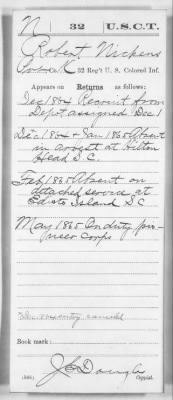 N 32 U.S.C.T.
Robert Nickens
Co. K, 32 Reg't U. S. Colored Inf.
Appears on Returns as follows:
Dec 1864 Recruit from
Depot assigned Dec 1
Dec 1864 & Jan 1865 Absent
in arrest at Hilton
Head S.C.
Feb 1865 Absent on
detached service at
Edisto Island SC
May 1865 On duty pio-
neer Corps
Book mark:
J. C. Douglas
(546) Copyist.